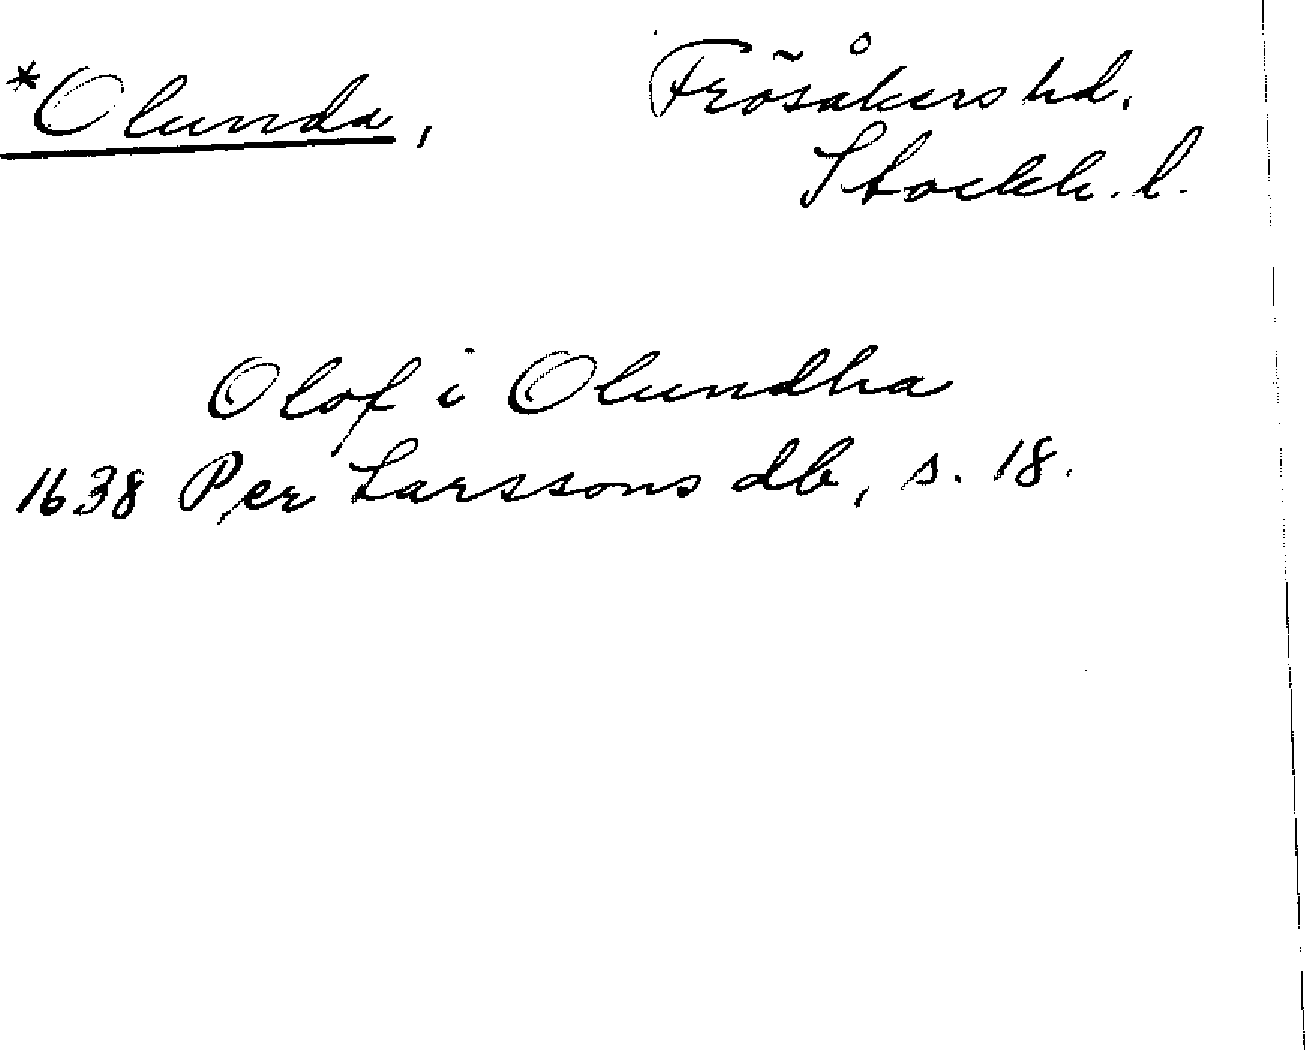 *Olunda, Frösåkers hd.
Stockh. l.
Olof i Olundha
1638 Per Larssons db, s. 18.